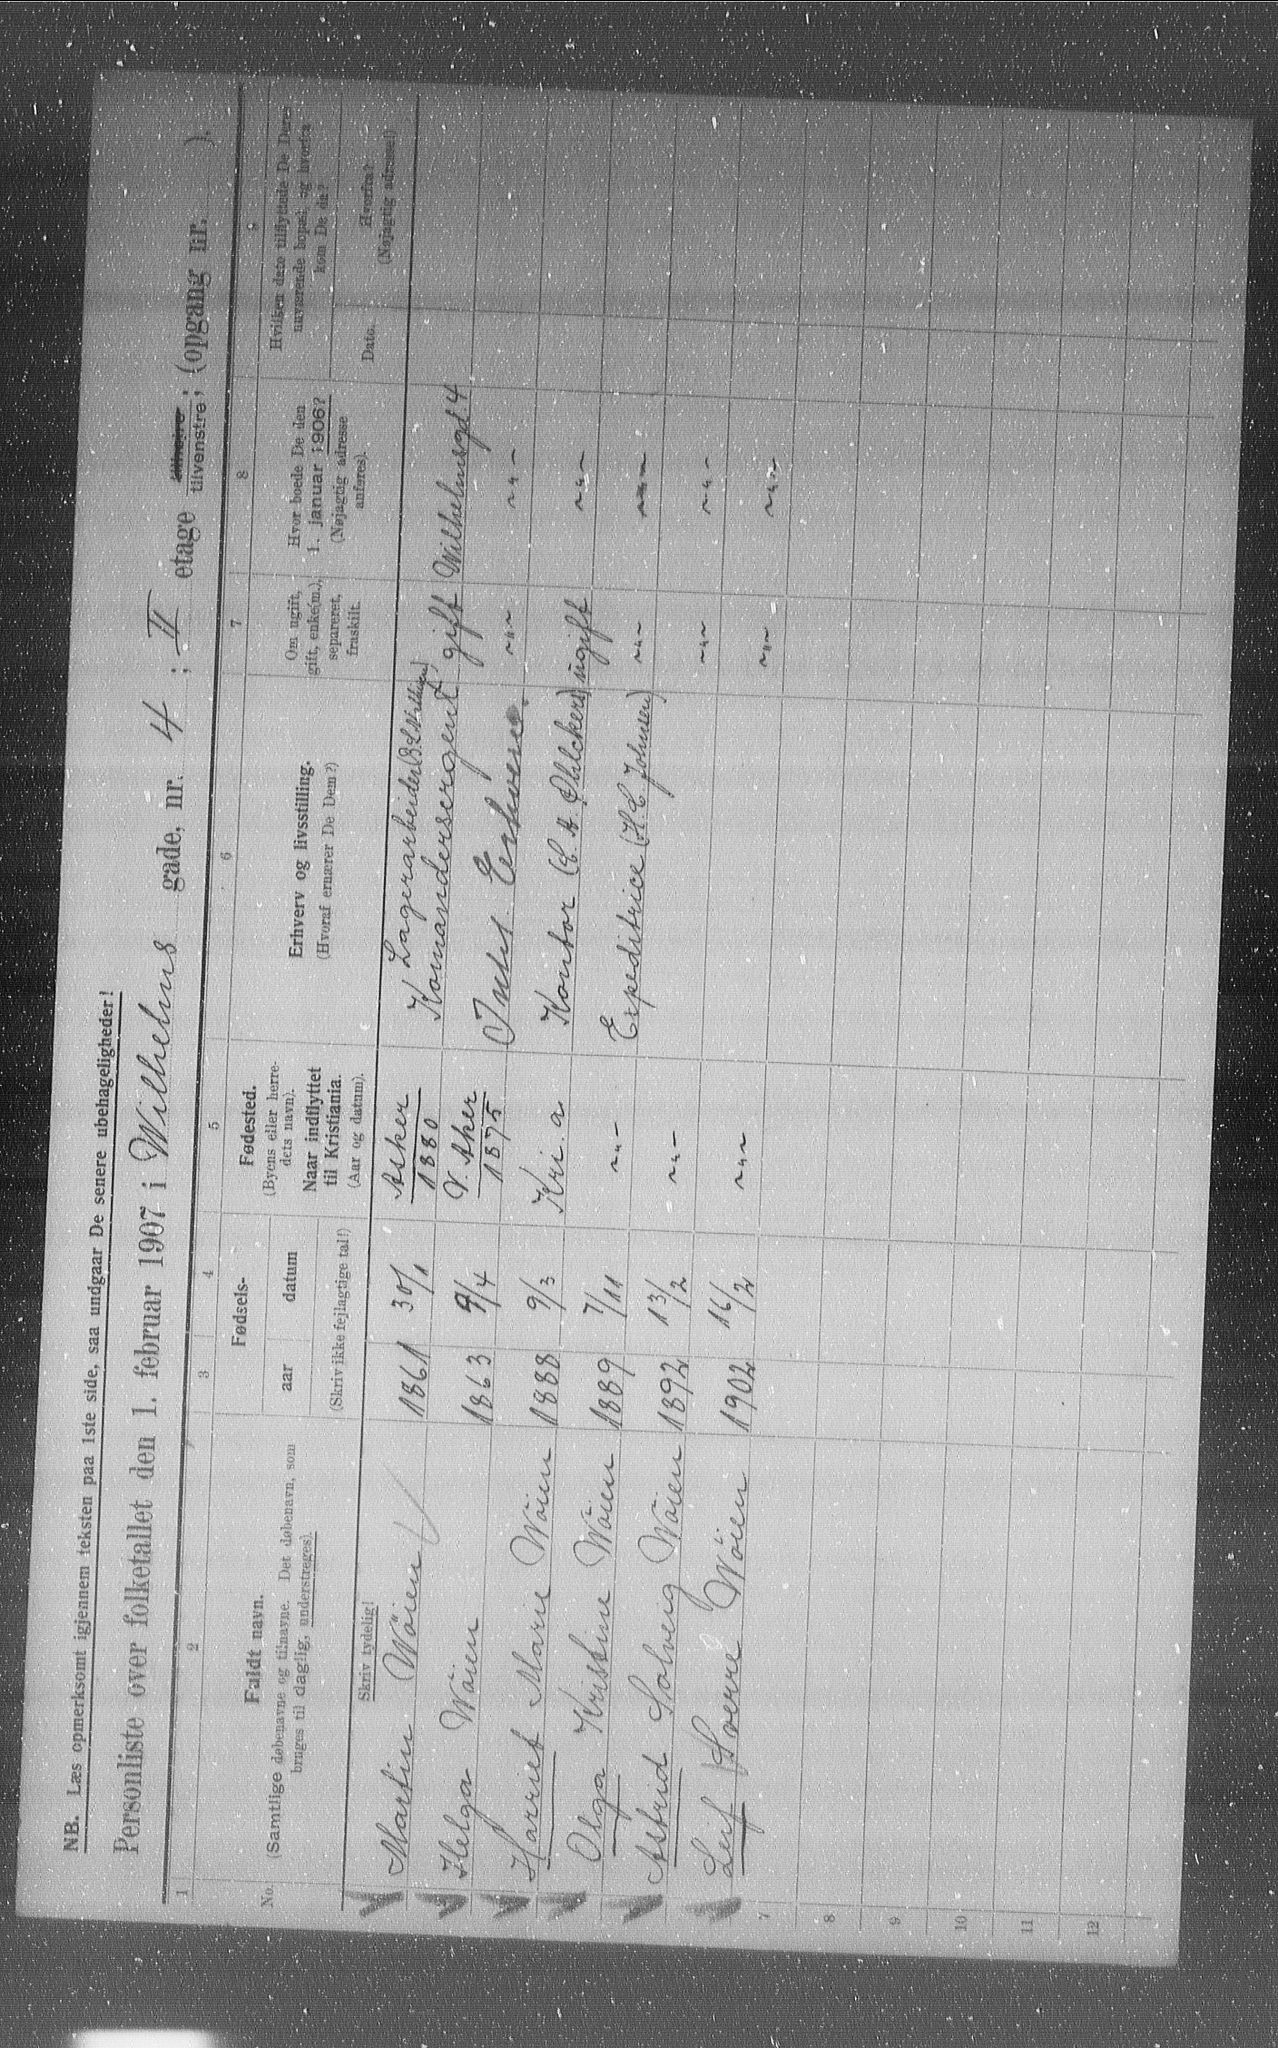 NB. Læs opmerksomt igjennem teksten paa 1ste side, saa undgaar De senere ubehageligheder!
Personliste over folketallet den 1. februar 1907 i Wilhelms gade, nr. 4 ; II etage tilhøjre tilvenstre; (opgang nr. ).
1 2 3 4 5 6 7 8 9
No.
Fuldt navn.
(Samtlige døbenavne og tilnavne. Det døbenavn, som
bruges til daglig, understreges).
Skriv tydelig!
Fødsels-
aar datum
(Skriv ikke fejlagtige tal!)
Fødested.
(Byens eller herre-
dets navn).
Naar indflyttet
til Kristiania.
(Aar og datum).
Erhverv og livsstilling.
(Hvoraf ernærer De Dem?)
Om ugift,
gift, enke(m.),
separeret,
fraskilt.
Hvor boede De den
1. januar 1906?
(Nøjagtig adresse
anføres).
Hvilken dato tilflyttede De Deres
nuværende bopæl, og hvorfra
kom De da?
Dato.
Hvorfra?
(Nøjagtig adresse!)
Martin Wöien 1861 30/1 Asker 1880 Lagerarbeider Komandersergent gift Wilhelmsgd. 4
Helga Wöien 1863 9/4 V. Aker 1875 Intet Erhverv. -"- -"-
Harriet Marie Wöien 1888 9/3 Kri.a Kontor ugift -"-
Olga Kristine Wöien 1889 7/11 -"- Expeditrice (H. C. Johnsen) -"- -"-
Astrid Solveig Wöien 1892 13/2 -"- -"- -"-
Leif Sverre Wöien 1902 16/2 -"- -"- -"-
7
8
9
10
11
12